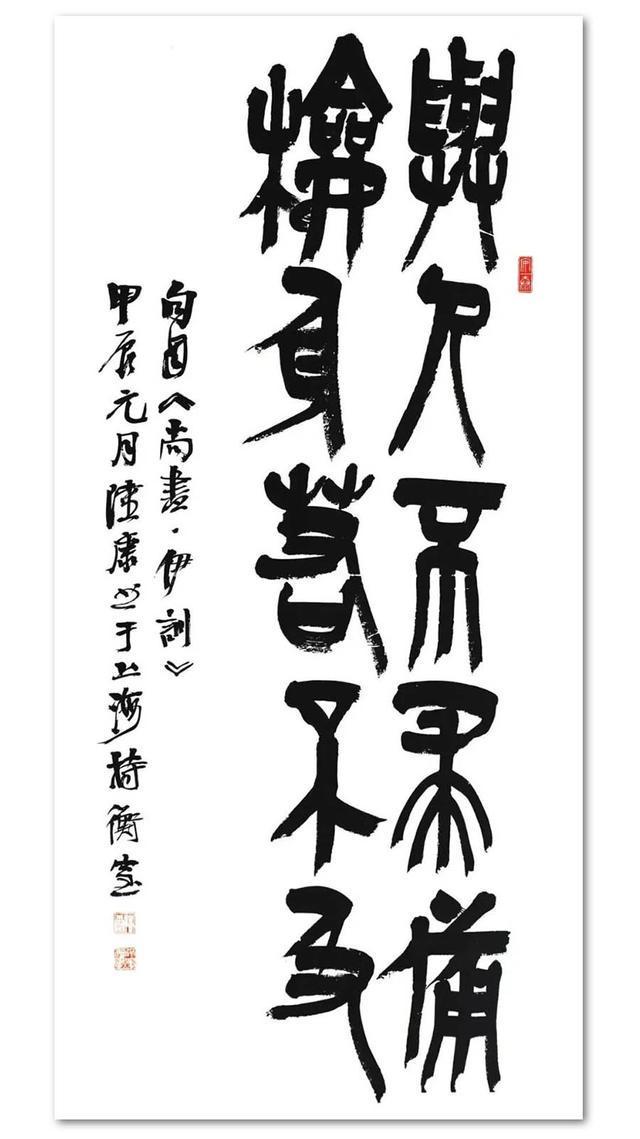 與人不求備
檢身若不及
句自《尚書·伊訓》
甲辰元月陸康書于上海持衡室